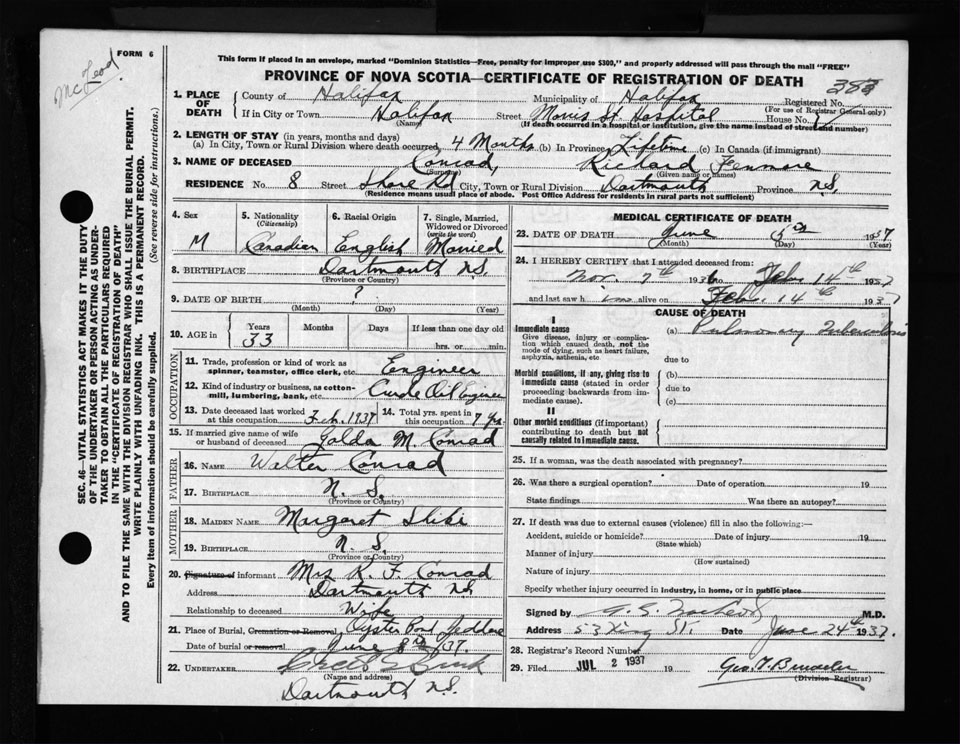 McLeod
FORM 6
This form if placed in an envelope, marked "Dominion Statistics—Free, penalty for improper use $300," and properly addressed will pass through the mail "FREE"
PROVINCE OF NOVA SCOTIA—CERTIFICATE OF REGISTRATION OF DEATH
1. PLACE OF DEATH County of Halifax Municipality of Halifax Registered No.
(For use of Registrar General only)
If in City or Town Halifax Street Morris St. Hospital House No.
(Name) (If death occurred in a hospital or institution, give the name instead of street and number)
2. LENGTH OF STAY (in years, months and days)
(a) In City, Town or Rural Division where death occurred 4 Months (b) In Province Lifetime (c) In Canada (if immigrant)
3. NAME OF DECEASED Conrad, Richard
(Surname) (Given name or names)
RESIDENCE No. 8 Street Shore Rd City, Town or Rural Division Dartmouth Province N.S.
(Residence means usual place of abode. Post Office Address for residents in rural parts not sufficient)
4. Sex 5. Nationality (Citizenship) 6. Racial Origin 7. Single, Married, Widowed or Divorced (write the word)
M Canadian English Married
8. BIRTHPLACE Dartmouth N.S.
(Province or Country)
9. DATE OF BIRTH ?
(Month) (Day) (Year)
10. AGE in Years Months Days If less than one day old
33 hrs. or min.
OCCUPATION
11. Trade, profession or kind of work as spinner, teamster, office clerk, etc. Engineer
12. Kind of industry or business, as cotton-mill, lumbering, bank, etc. Crude Oil Engineer
13. Date deceased last worked at this occupation Feb. 1937 14. Total yrs. spent in this occupation 7 yrs.
15. If married give name of wife or husband of deceased Golda M. Conrad
FATHER
16. NAME Walter Conrad
17. BIRTHPLACE N. S.
(Province or Country)
MOTHER
18. MAIDEN NAME Margaret
19. BIRTHPLACE N. S.
(Province or Country)
20. Signature of informant Mrs R. F. Conrad
Address Dartmouth N.S.
Relationship to deceased Wife
21. Place of Burial, Cremation or Removal Oyster Pond Jeddore
Date of burial or removal June 8th 37.
22. UNDERTAKER
(Name and address)
Dartmouth N.S.
MEDICAL CERTIFICATE OF DEATH
23. DATE OF DEATH June 5th 1937
(Month) (Day) (Year)
24. I HEREBY CERTIFY that I attended deceased from:
Nov. 7th 1936 to Feb. 14th 1937
and last saw him alive on Feb. 14th 1937
CAUSE OF DEATH
I
Immediate cause
Give disease, injury or complication which caused death, not the mode of dying, such as heart failure, asphyxia, asthenia, etc
(a) Pulmonary Tuberculosis
due to
Morbid conditions, if any, giving rise to immediate cause (stated in order proceeding backwards from immediate cause).
(b)
due to
(c)
II
Other morbid conditions (if important) contributing to death but not causally related to immediate cause.
25. If a woman, was the death associated with pregnancy?
26. Was there a surgical operation? Date of operation 19
State findings Was there an autopsy?
27. If death was due to external causes (violence) fill in also the following:—
Accident, suicide or homicide? Date of injury 19
(State which)
Manner of injury
(How sustained)
Nature of injury
Specify whether injury occurred in industry, in home, or in public place
Signed by M.D.
Address 53 King St. Date June 24th 1937.
28. Registrar's Record Number
29. Filed JUL 2 1937 19
(Division Registrar)
SEC. 46—VITAL STATISTICS ACT MAKES IT THE DUTY
OF THE UNDERTAKER OR PERSON ACTING AS UNDER-
TAKER TO OBTAIN ALL THE PARTICULARS REQUIRED
IN THE "CERTIFICATE OF REGISTRATION OF DEATH"
AND TO FILE THE SAME WITH THE DIVISION REGISTRAR WHO SHALL ISSUE THE BURIAL PERMIT.
WRITE PLAINLY WITH UNFADING INK. THIS IS A PERMANENT RECORD.
Every item of information should be carefully supplied. (See reverse side for instructions.)